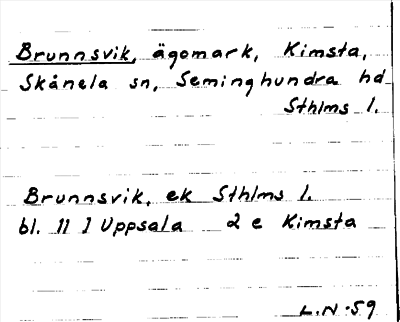 Brunnsvik, ägomark, Kimsta,
Skånela sn, Seminghundra hd
Sthlms l.
Brunnsvik, ek Sthlms l.
bl. 11 I Uppsala 2 e Kimsta
L.N-59